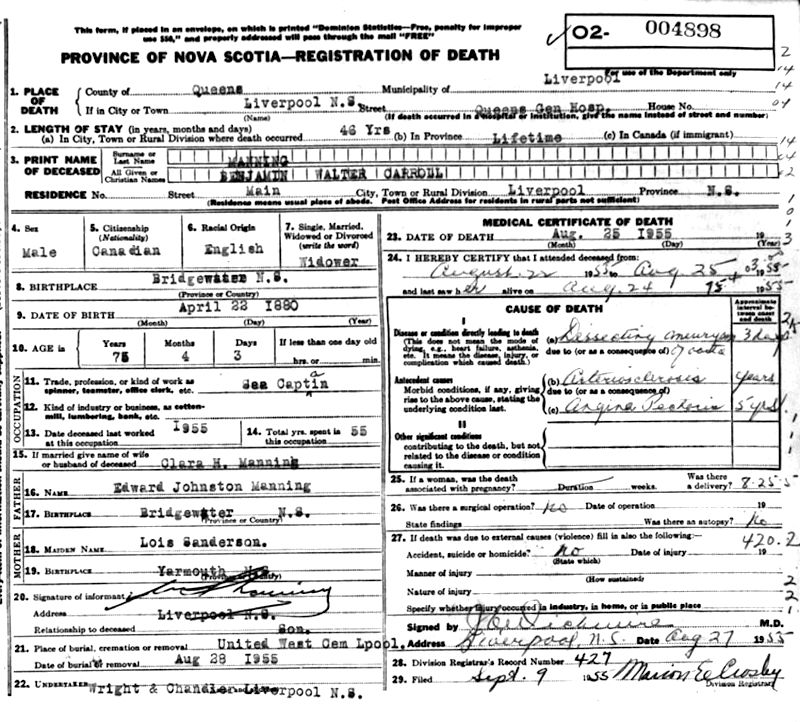 This form, if placed in an envelope, on which is printed "Dominion Statistics—Free, penalty for improper
use $50," and properly addressed will pass through the mail "FREE"
PROVINCE OF NOVA SCOTIA—REGISTRATION OF DEATH
02- 004898
For use of the Department only
1. PLACE OF DEATH County of Queens Municipality of Liverpool
If in City or Town Liverpool N.S. Street Queens Gen Hosp. House No.
(Name) (If death occurred in a hospital or institution, give the name instead of street and number)
2. LENGTH OF STAY (in years, months and days)
(a) In City, Town or Rural Division where death occurred 46 Yrs (b) In Province Lifetime (c) In Canada (if immigrant)
3. PRINT NAME OF DECEASED Surname or Last Name MANNING
All Given or Christian Names BENJAMIN WALTER CARROLL
RESIDENCE No. Street Main City, Town or Rural Division Liverpool Province N.S.
(Residence means usual place of abode. Post Office Address for residents in rural parts not sufficient)
4. Sex Male
5. Citizenship (Nationality) Canadian
6. Racial Origin English
7. Single, Married, Widowed or Divorced (write the word) Widower
8. BIRTHPLACE Bridgewater N.S.
(Province or Country)
9. DATE OF BIRTH April 22 1880
(Month) (Day) (Year)
10. AGE in Years 75 Months 4 Days 3 If less than one day old hrs. or min.
OCCUPATION
11. Trade, profession, or kind of work as spinner, teamster, office clerk, etc. Sea Captin a
12. Kind of industry or business, as cotton-mill, lumbering, bank, etc.
13. Date deceased last worked at this occupation 1955
14. Total yrs. spent in this occupation 55
15. If married give name of wife or husband of deceased Clara H. Manning
FATHER
16. NAME Edward Johnston Manning
17. BIRTHPLACE Bridgewater N.S.
(Province or Country)
MOTHER
18. MAIDEN NAME Lois Sanderson.
19. BIRTHPLACE Yarmouth N.S.
(Province or Country)
20. Signature of informant Manning
Address Liverpool N.S.
Relationship to deceased Son.
21. Place of burial, cremation or removal United West Cem Lpool.
Date of burial or removal Aug 28 1955
22. UNDERTAKER Wright & Chandler Liverpool N.S.
MEDICAL CERTIFICATE OF DEATH
23. DATE OF DEATH Aug. 25 1955 19
(Month) (Day) (Year)
24. I HEREBY CERTIFY that I attended deceased from:
August 22 1955 to Aug 25 1955
and last saw her alive on Aug 24 1955
CAUSE OF DEATH
Approximate interval between onset and death
I
Disease or condition directly leading to death
(This does not mean the mode of dying, e.g., heart failure, asthenia, etc. It means the disease, injury, or complication which caused death.)
(a) Dissecting aneurysm 3 days
due to (or as a consequence of) of aorta
Antecedent causes
Morbid conditions, if any, giving rise to the above cause, stating the underlying condition last.
(b) Arteriosclerosis years
due to (or as a consequence of)
(c) Angina Pectoris 5 yrs.
II
Other significant conditions
contributing to the death, but not related to the disease or condition causing it.
25. If a woman, was the death associated with pregnancy? Duration weeks. Was there a delivery? 8-25-5
26. Was there a surgical operation? No Date of operation 19
State findings Was there an autopsy? No
27. If death was due to external causes (violence) fill in also the following:— 420.2
Accident, suicide or homicide? No Date of injury 19
(State which)
Manner of injury
(How sustained)
Nature of injury
Specify whether injury occurred in industry, in home, or in public place
Signed by M.D.
Address Liverpool, N.S. Date Aug 27 1955
28. Division Registrar's Record Number 427
29. Filed Sept. 9 1955 Marion E. Crosby
Division Registrar